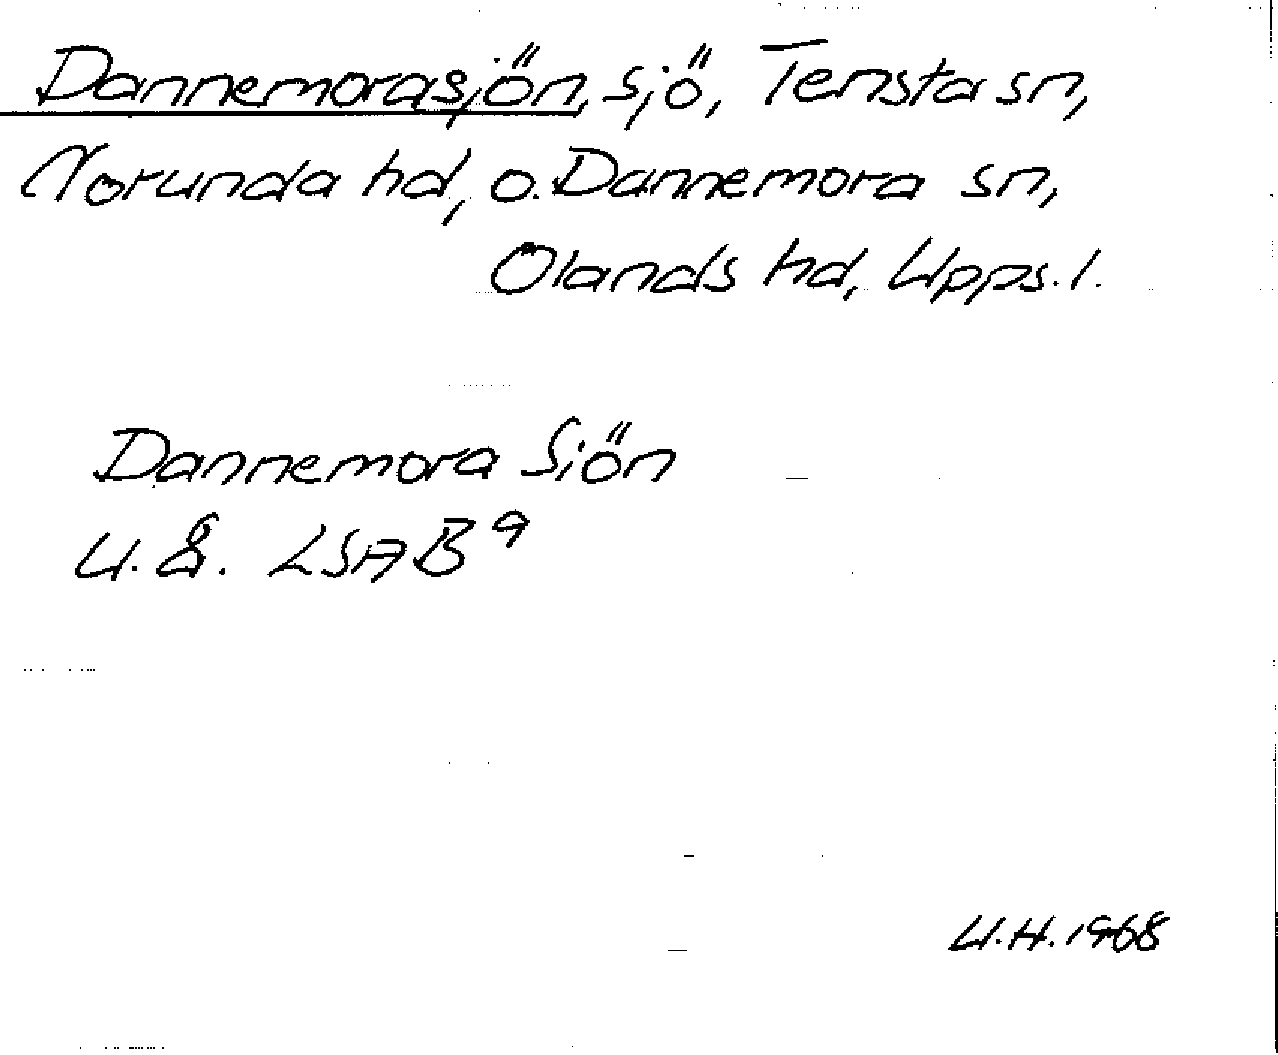 Dannemorasjön, sjö, Tensta sn,
Norunda hd, o. Dannemora sn,
Olands hd, Upps. l.
Dannemora Siön
U. å. LSA B⁹
U.H. 1968